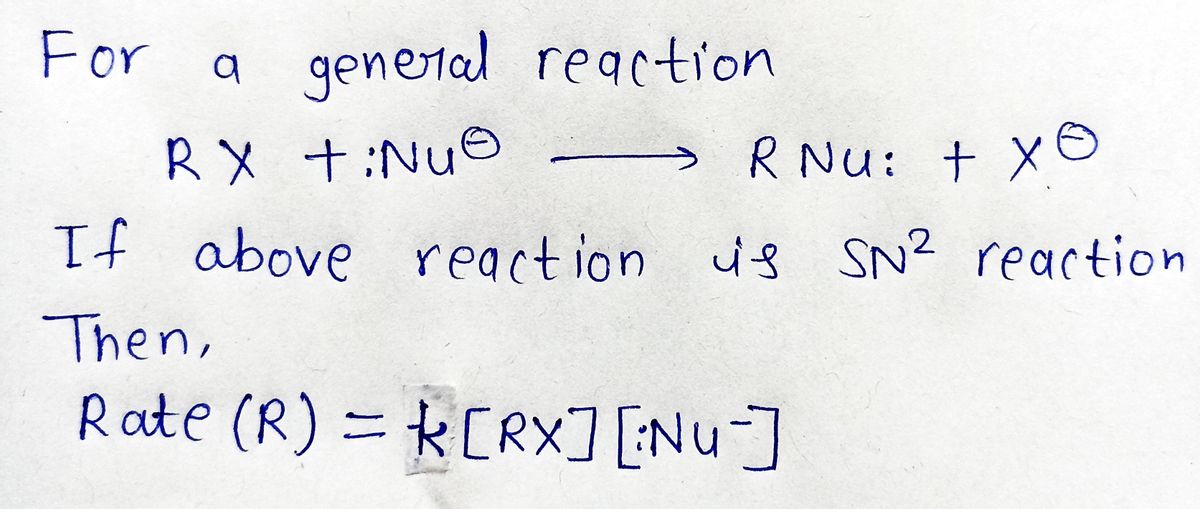 For a general reaction
RX + :Nu⊖ ⟶ RNu: + X⊖
If above reaction is SN² reaction
Then,
Rate (R) = k[RX][:Nu⁻]